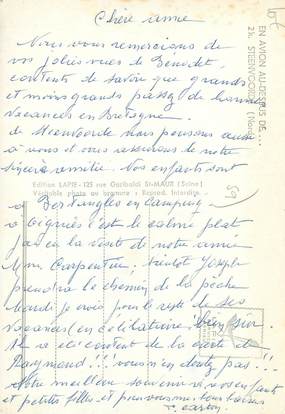 Chère amie
Nous vous remercions de
vos jolies vues de Benodet,
contents de savoir que grands
et moins grands passez de bonnes
vacances en Bretagne.
de Steenvoorde nous pensons aussi
à vous et vous assurons de notre
sincère amitié. Nos enfants sont
Edition LAPIE - 125 rue Garibaldi St-MAUR (Seine)
Véritable photo au bromure - Reprod. Interdite
à Bertangles en Camping
à c'est le calme plat
j'ai eu la visite de notre amie
Mme Carpentier, bientôt Joseph
prendra le chemin de la pêche
Mardi je crois pour le reste de ses
vacances (en célibataire) bien sûr.
Il a été content de la carte de
Raymond!!! vous n'en doutez pas!!
Notre meilleur souvenir à vos enfants
et petites filles et pour vous mes bons baisers
EN AVION AU-DESSUS DE ...
21. STEENVOORDE (Nord)
59